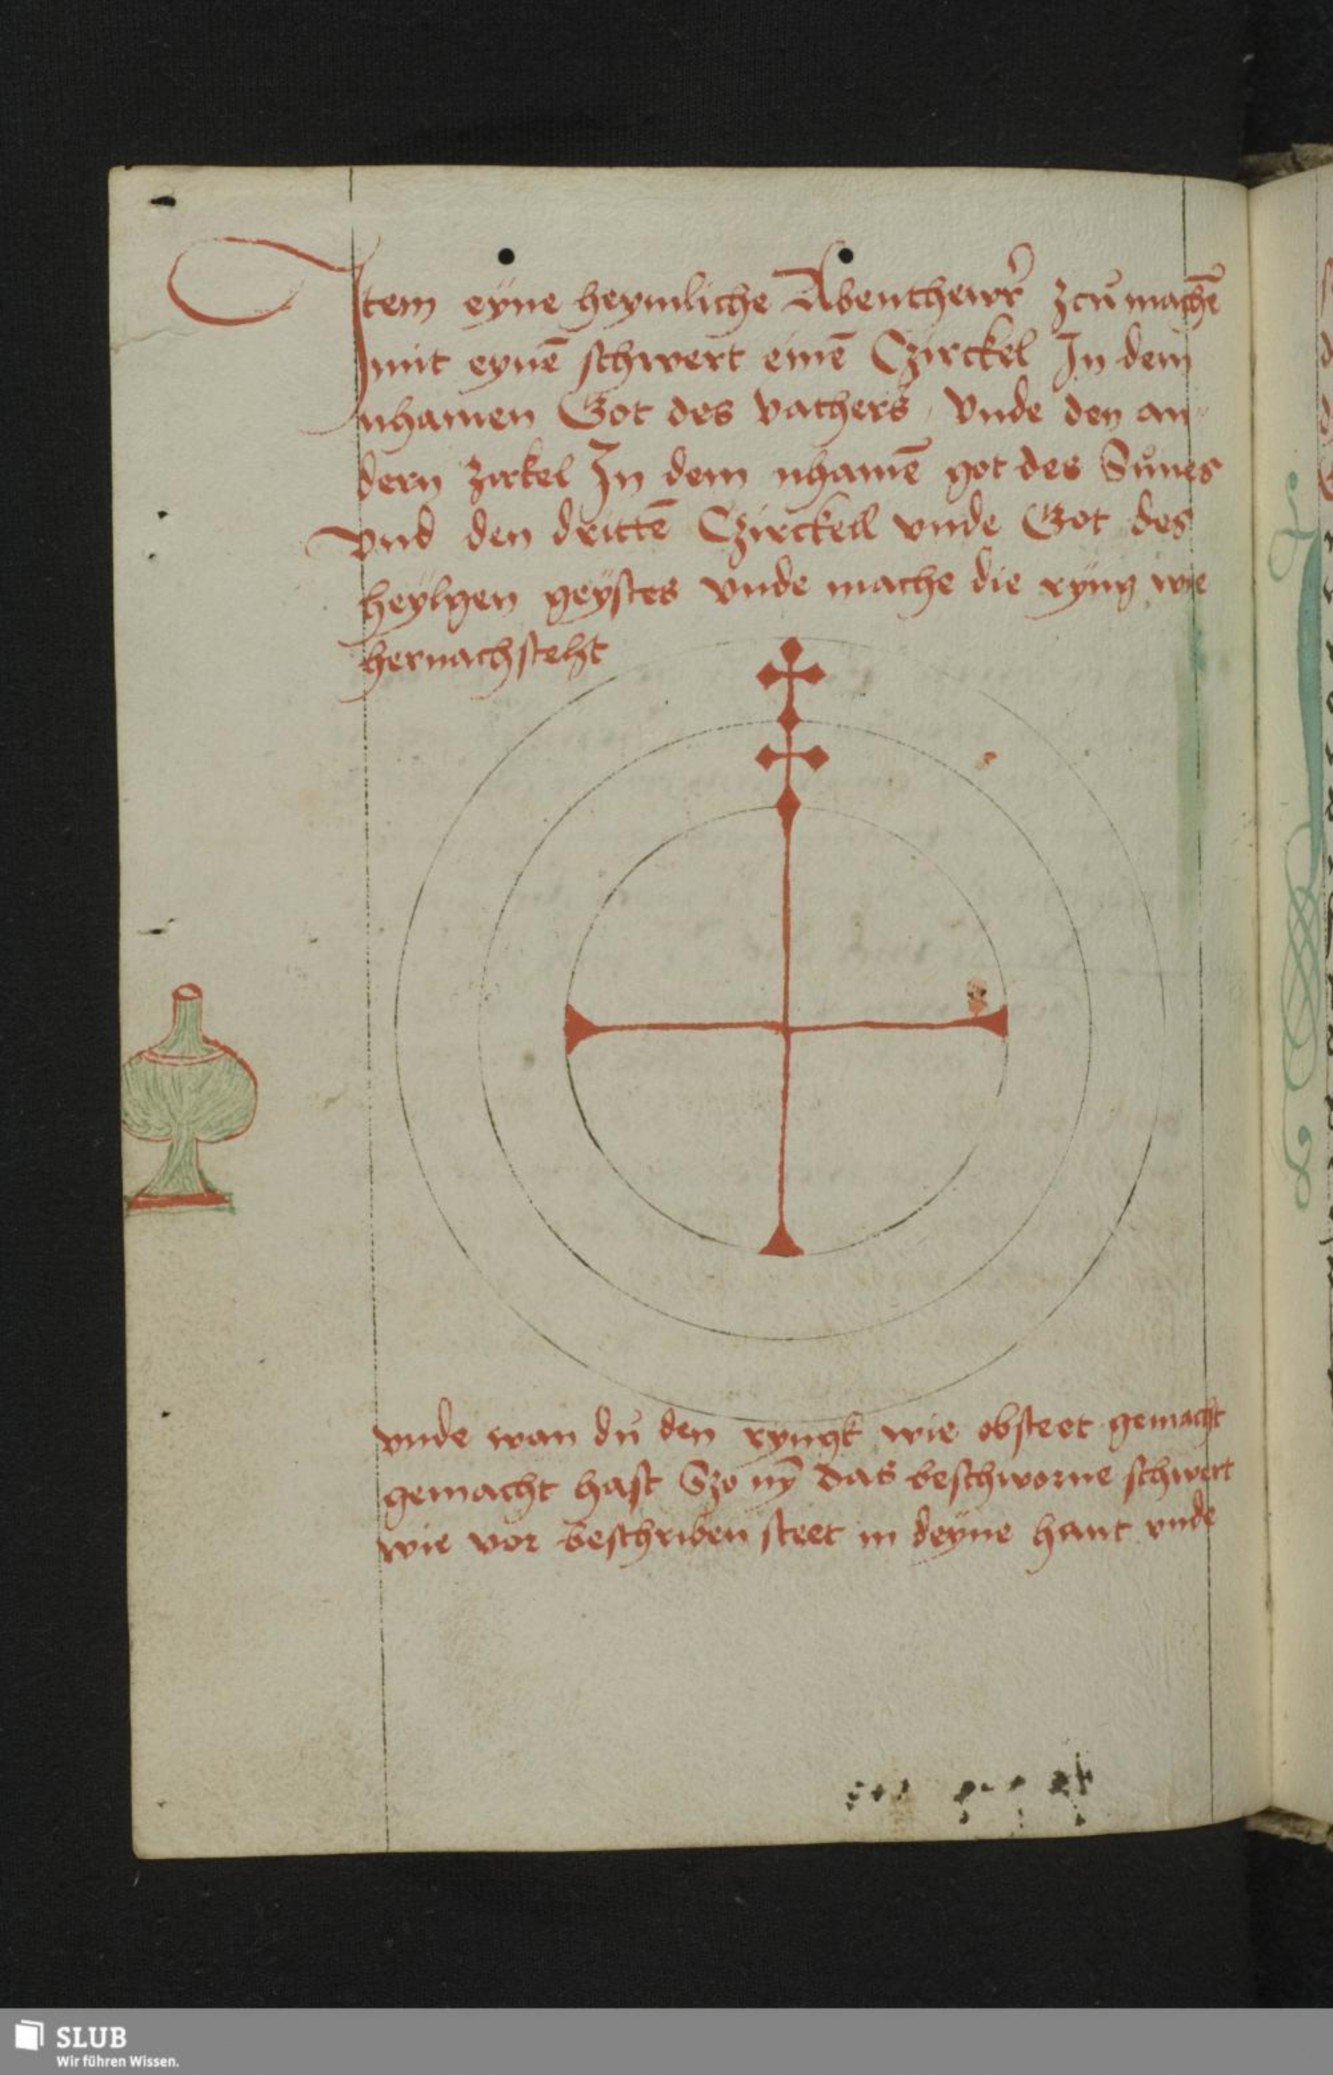 Item eyne heymliche Abentheẃr zcu machē
mit eynē schwert einē Czirckel In dem
nhamen Got des vathers, Vnde den an
dern zirkel In dem nhamē got des Sůnes
Vnd den drittē Czirckell vnde Got des
heÿlgen geÿstes vnde mache die ryng wie
hernachsteht
vnde wan du den ryngk wie obsteet gemacht
gemacht hast Szo nȳ das beschworne schwert
wie vor beschriben steet in deyne hant vnde
SLUB
Wir führen Wissen.